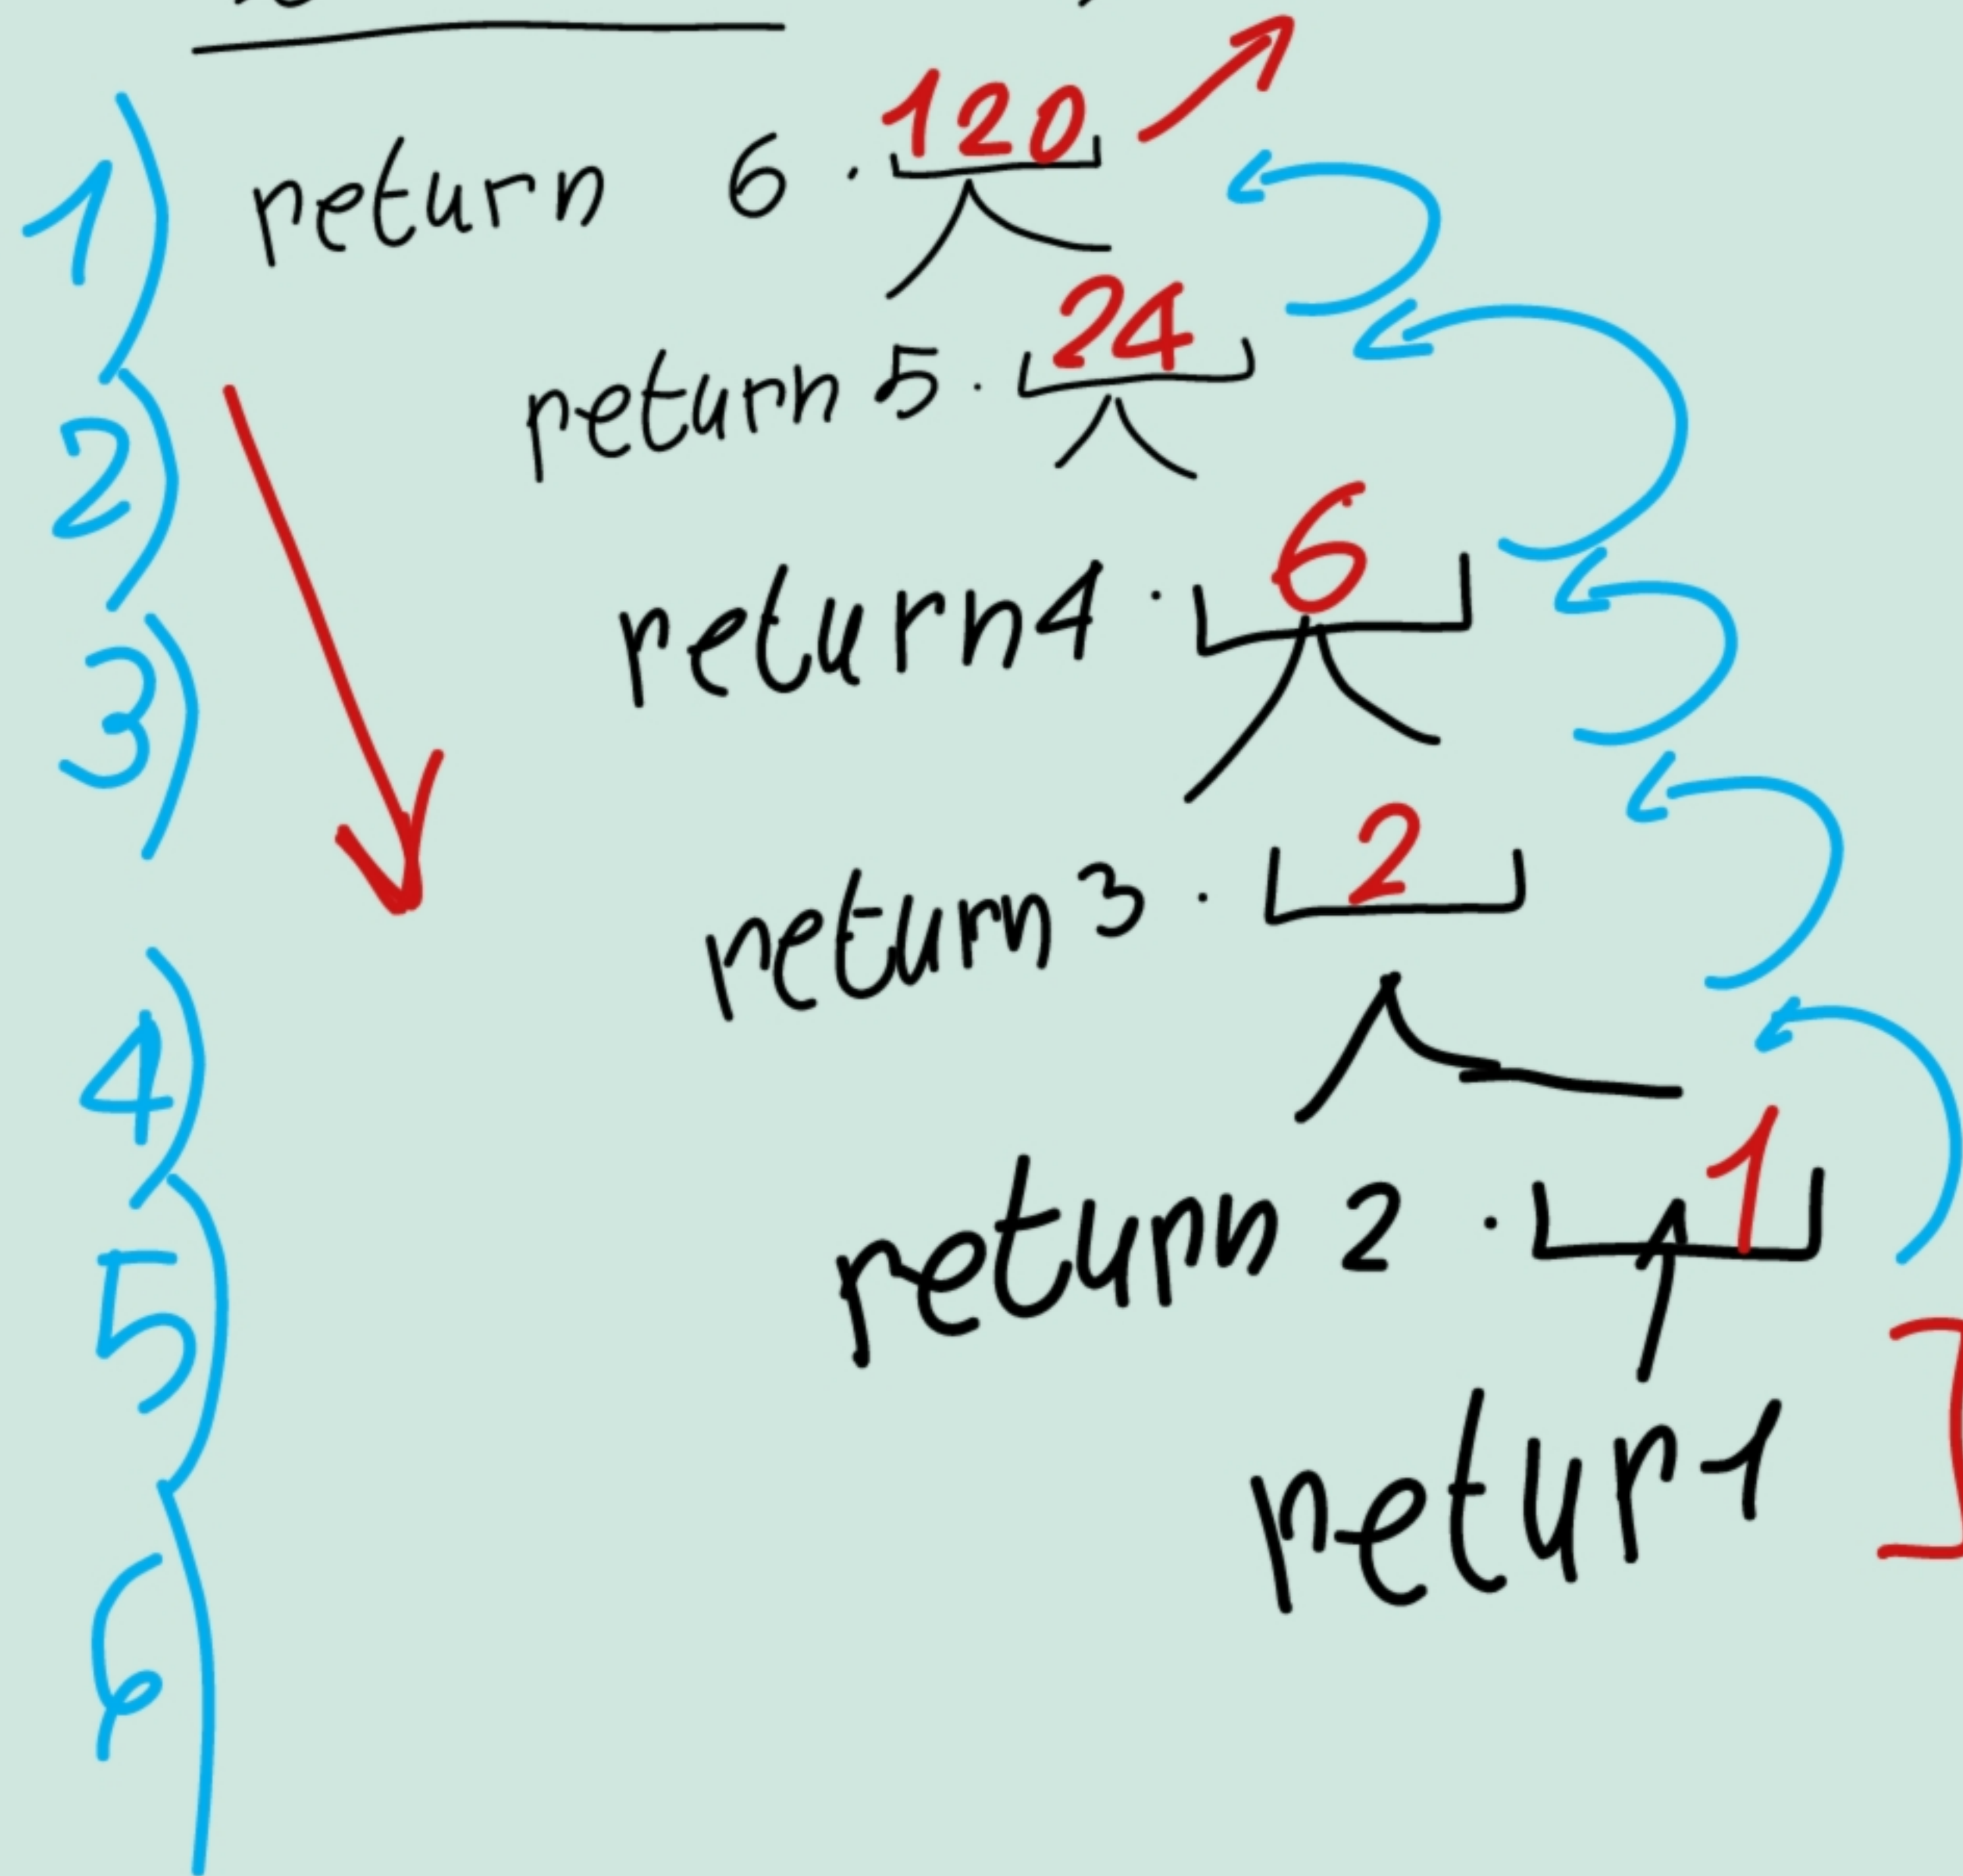 1) return 6 · 120
2) return 5 · 24
3) return 4 · 6
4) return 3 · 2
5) return 2 · 1
6) retur 1